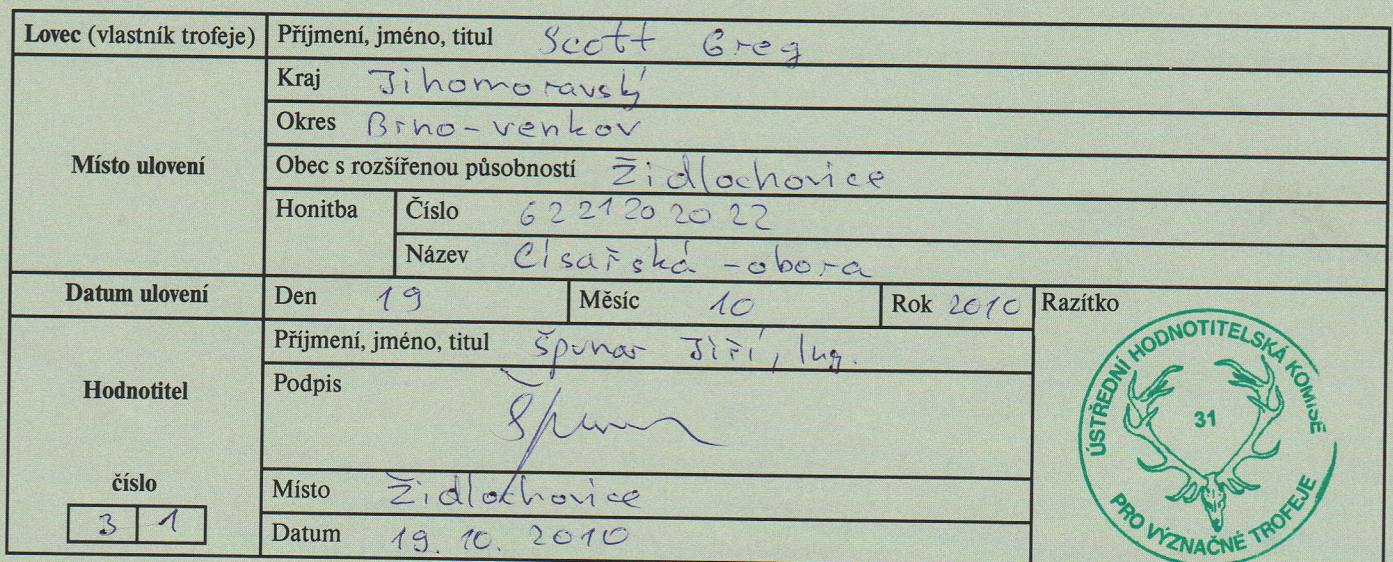 Lovec (vlastník trofeje) Příjmení, jméno, titul Scott Greg
Místo ulovení
Kraj Jihomoravský
Okres Brno-venkov
Obec s rozšířenou působností Židlochovice
Honitba Číslo 6221202022
Název Císařská - obora
Datum ulovení Den 19 Měsíc 10 Rok 2010 Razítko
Hodnotitel
Příjmení, jméno, titul Špunar Jiří, Ing.
Podpis
číslo
3 1
Místo Židlochovice
Datum 19. 10. 2010
ÚSTŘEDNÍ HODNOTITELSKÁ KOMISE
31
PRO VÝZNAČNÉ TROFEJE